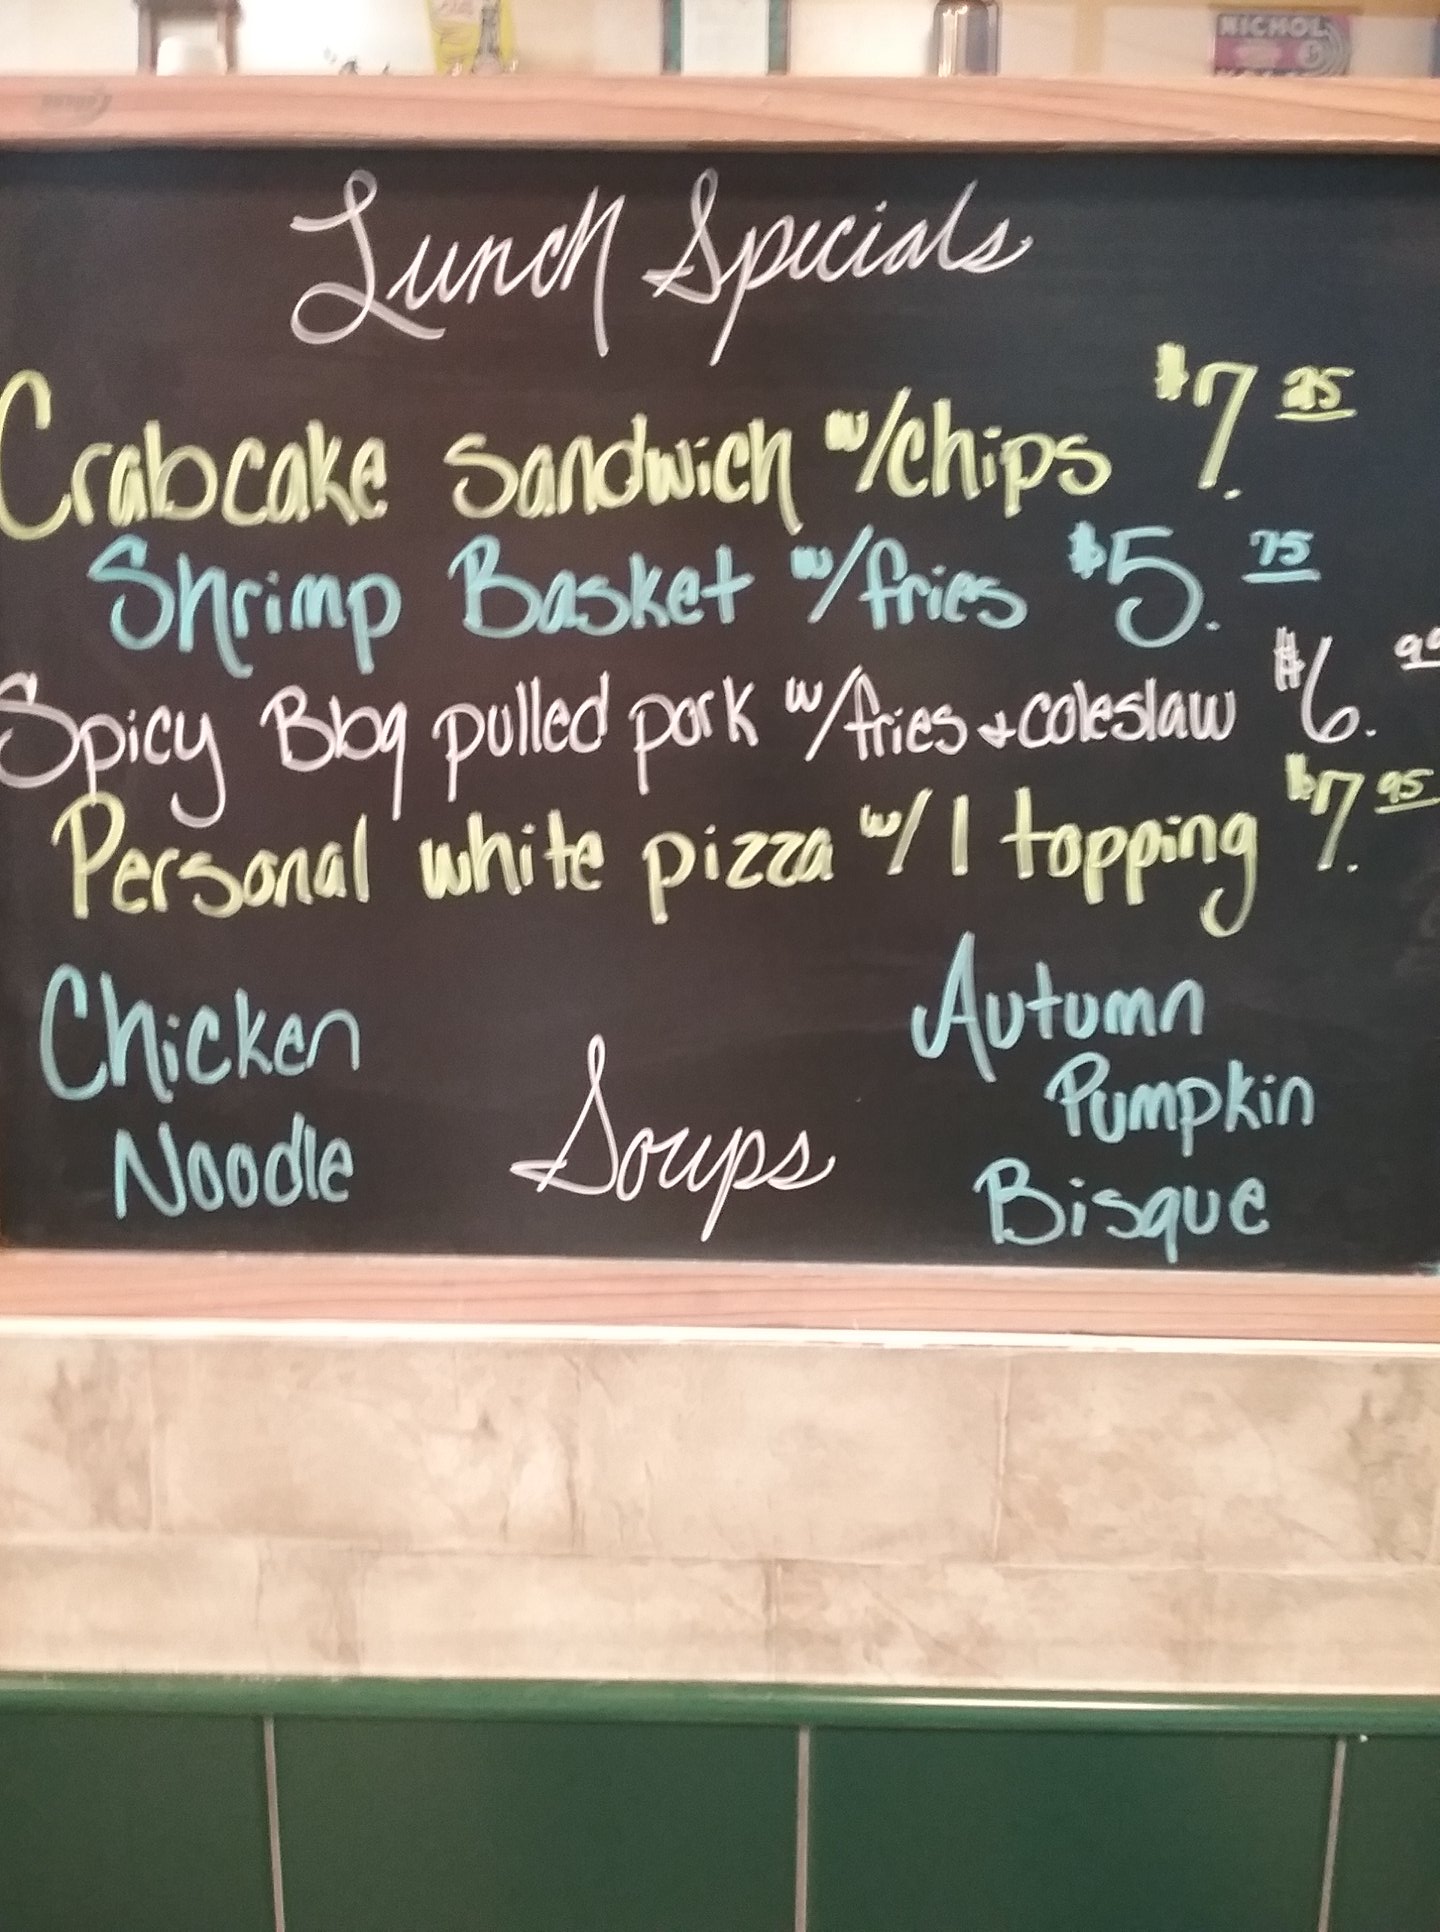 NICHOL
Lunch Specials
Crabcake sandwich w/chips $7.25
Shrimp Basket w/fries $5.75
Spicy Bbq pulled pork w/fries + coleslaw $6.99
Personal white pizza w/ 1 topping $7.95
Chicken
Noodle
Soups
Autumn
Pumpkin
Bisque